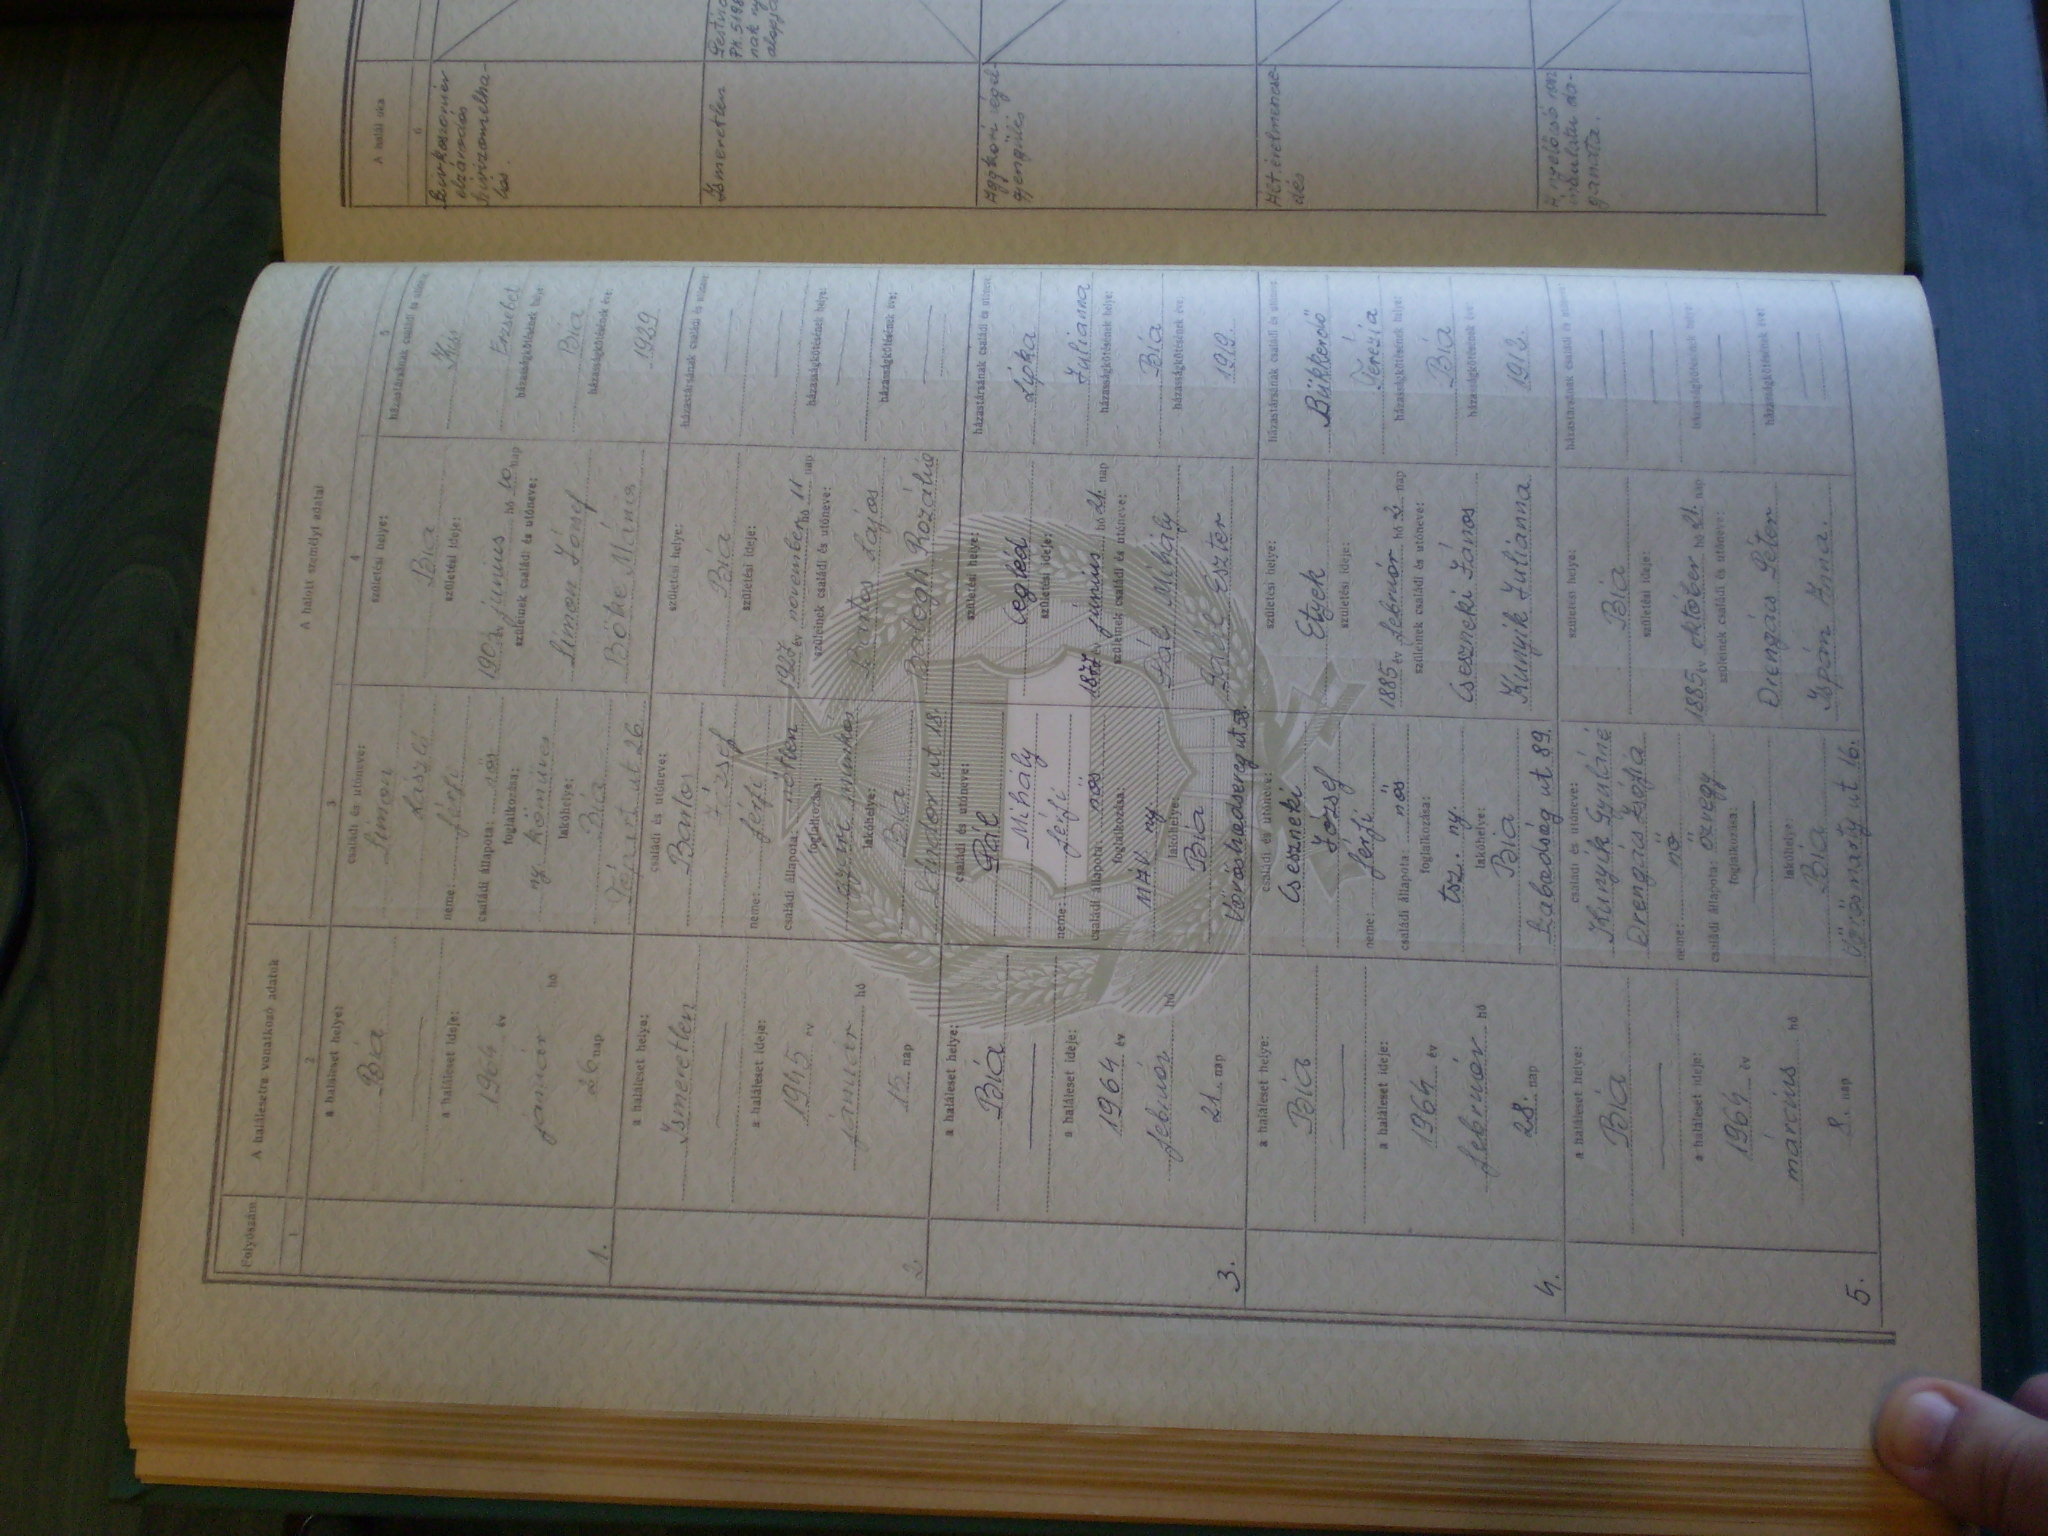 Folyószám
A halálesetre vonatkozó adatok
A halott személyi adatai
1
2
3
4
5
a haláleset helye:
Bia
a haláleset ideje:
1964 év
január hó
26 nap
1.
családi és utóneve:
Simon
László
neme: férfi
családi állapota: nős
foglalkozása:
ny. kőműves
lakóhelye:
Bia
út 26
születési helye:
Bia
születési ideje:
június hó 10 nap
szüleinek családi és utóneve:
Simon József
Bőke Mária
házastársának családi és utóneve:
Kis
Erzsébet
házasságkötésének helye
Bia
házasságkötésének éve:
1929
a haláleset helye:
Ismeretlen
a haláleset ideje:
1945 év
január hó
15 nap
2.
családi és utóneve:
József
neme: férfi
családi állapota: nőtlen
foglalkozása:
gyári munkás
lakóhelye:
Bia
Sándor út 18.
születési helye:
Bia
születési ideje:
1927 év november hó 11 nap
szüleinek családi és utóneve:
Lajos
Balogh Rozália
házastársának családi és utóneve:
házasságkötésének helye:
házasságkötésének éve:
a haláleset helye:
Bia
a haláleset ideje:
1964 év
február hó
21. nap
3.
családi és utóneve:
Gál
Mihály
neme: férfi
családi állapota: nős
foglalkozása:
MÁV. ny
lakóhelye:
Bia
Vöröshadsereg út 58.
születési helye:
Cegléd
születési ideje:
1877 év június hó 21. nap
szüleinek családi és utóneve:
Gál Mihály
Gaál Eszter
házastársának családi és utóneve:
Lipka
Julianna
házasságkötésének helye:
Bia
házasságkötésének éve:
1919.
a haláleset helye:
Bia
a haláleset ideje:
1964 év
február hó
28. nap
4.
családi és utóneve:
Cseszneki
József
neme: férfi
családi állapota: nős
foglalkozása:
tsz. ny.
lakóhelye:
Bia
Szabadság út 89.
születési helye:
Etyek
születési ideje:
1885 év február hó 2 nap
szüleinek családi és utóneve:
Cseszneki János
Kunyik Julianna.
házastársának családi és utóneve:
Bükkerdő
Terézia
házasságkötésének helye:
Bia
házasságkötésének éve:
a haláleset helye:
Bia
a haláleset ideje:
1964 év
március hó
8. nap
5.
családi és utóneve:
Kunyik Gyuláné
Drengács Zsófia
neme: nő
családi állapota: özvegy
foglalkozása:
lakóhelye:
Bia
Vörösmarty út 16.
születési helye:
Bia
születési ideje:
1885 év október hó 21. nap
szüleinek családi és utóneve:
Drengács Péter
Ispán Zsina.
házastársának családi és utóneve:
házasságkötésének helye
házasságkötésének éve:
A halál oka
6
elzáródás
Ismeretlen
Aggkori végel-
gyengülés
Ált. érelmesze-
dés
A nyelőcső
ganata.